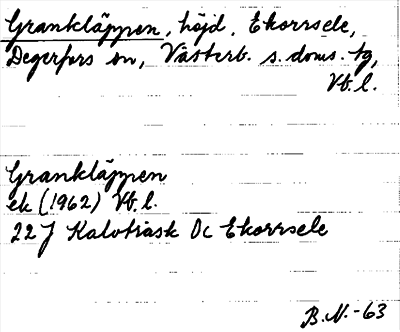 Grankläppen, höjd, Ekorrsele,
Degerfors sn, Västerb. s. doms. tg,
Vb. l.
Grankläppen
ek (1962) Vb. l.
22 J Kalvträsk Dc Ekorrsele
B.N.-63